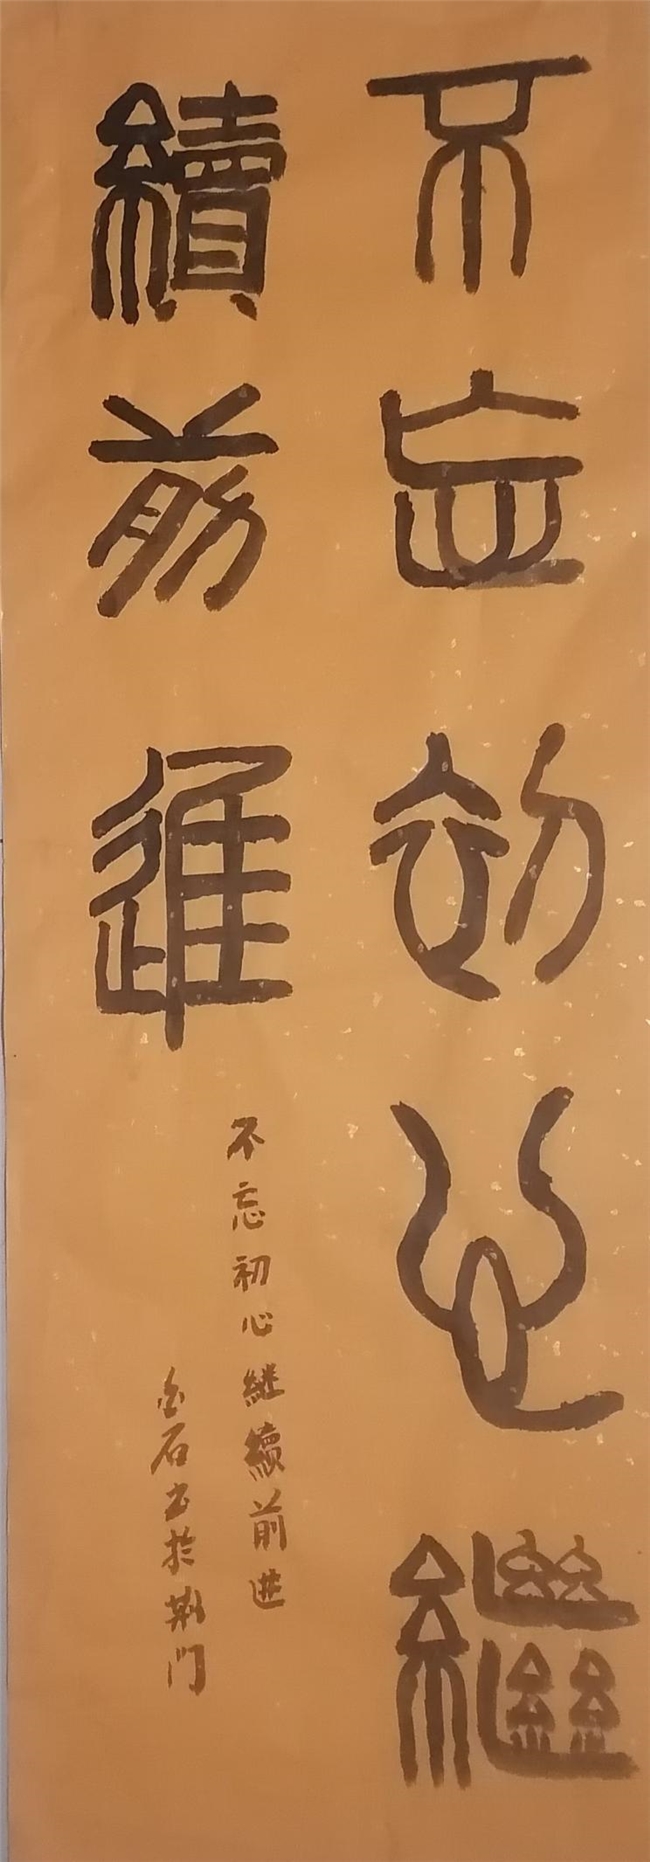 不忘初心繼
續前進
不忘初心継續前进
金石书於荆门